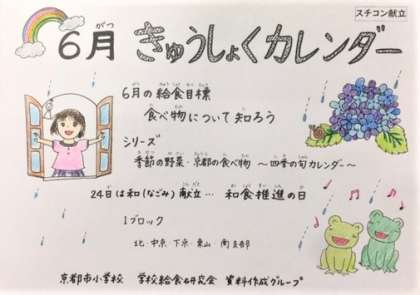 スチコン献立
6月 きゅうしょくカレンダー
6月の給食目標
食べ物について知ろう
シリーズ
季節の野菜・京都の食べ物 ～四季の旬カレンダー～
24日は和(なごみ)献立… 和食推進の日
1ブロック
北 中京 下京 東山 南支部
京都市小学校 学校給食研究会 資料作成グループ